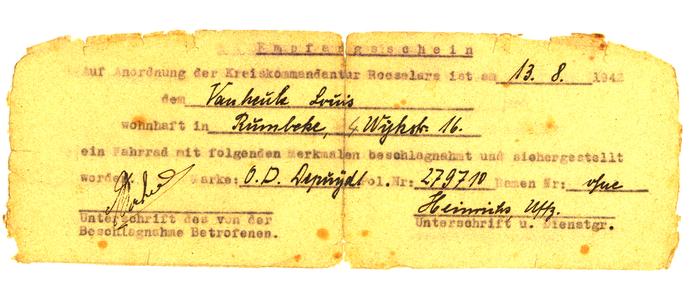 Empfangsschein
Auf Anordnung der Kreiskommandantur Roeselare ist am 13. 8. 1942
dem Vanheule Louis
wohnhaft in Rumbeke, Wijkstr. 16.
ein Fahrrad mit folgenden Merkmalen beschlagnahmt und sichergestellt
worden Marke: O.D. Depuydt Pol.Nr: 279710 Ramen Nr: ohne
Heinrichs, Uffz.
Unterschrift des von der Unterschrift u. Dienstgr.
Beschlagnahme Betroffenen.